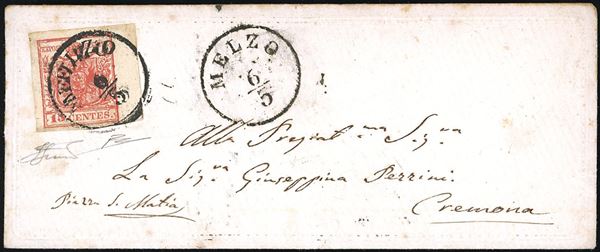 MELZO
6/5
MELZO
6/5
15 CENTES.
Alla Pregiat.ma Sig.ra
La Sig.ra Giuseppina Perrini
Piazza S. Mattia
Cremona